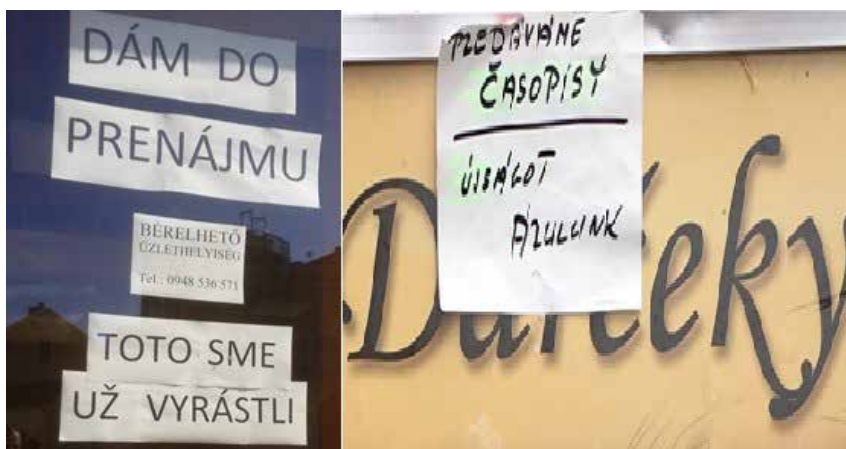 DÁM DO
PRENÁJMU
BÉRELHETŐ
ÜZLETHELYISÉG
Tel.: 0948 536 571
TOTO SME
UŽ VYRÁSTLI
PREDÁVAME
ČASOPISY
ÚJSÁGOT
ÁRULUNK
Darčeky